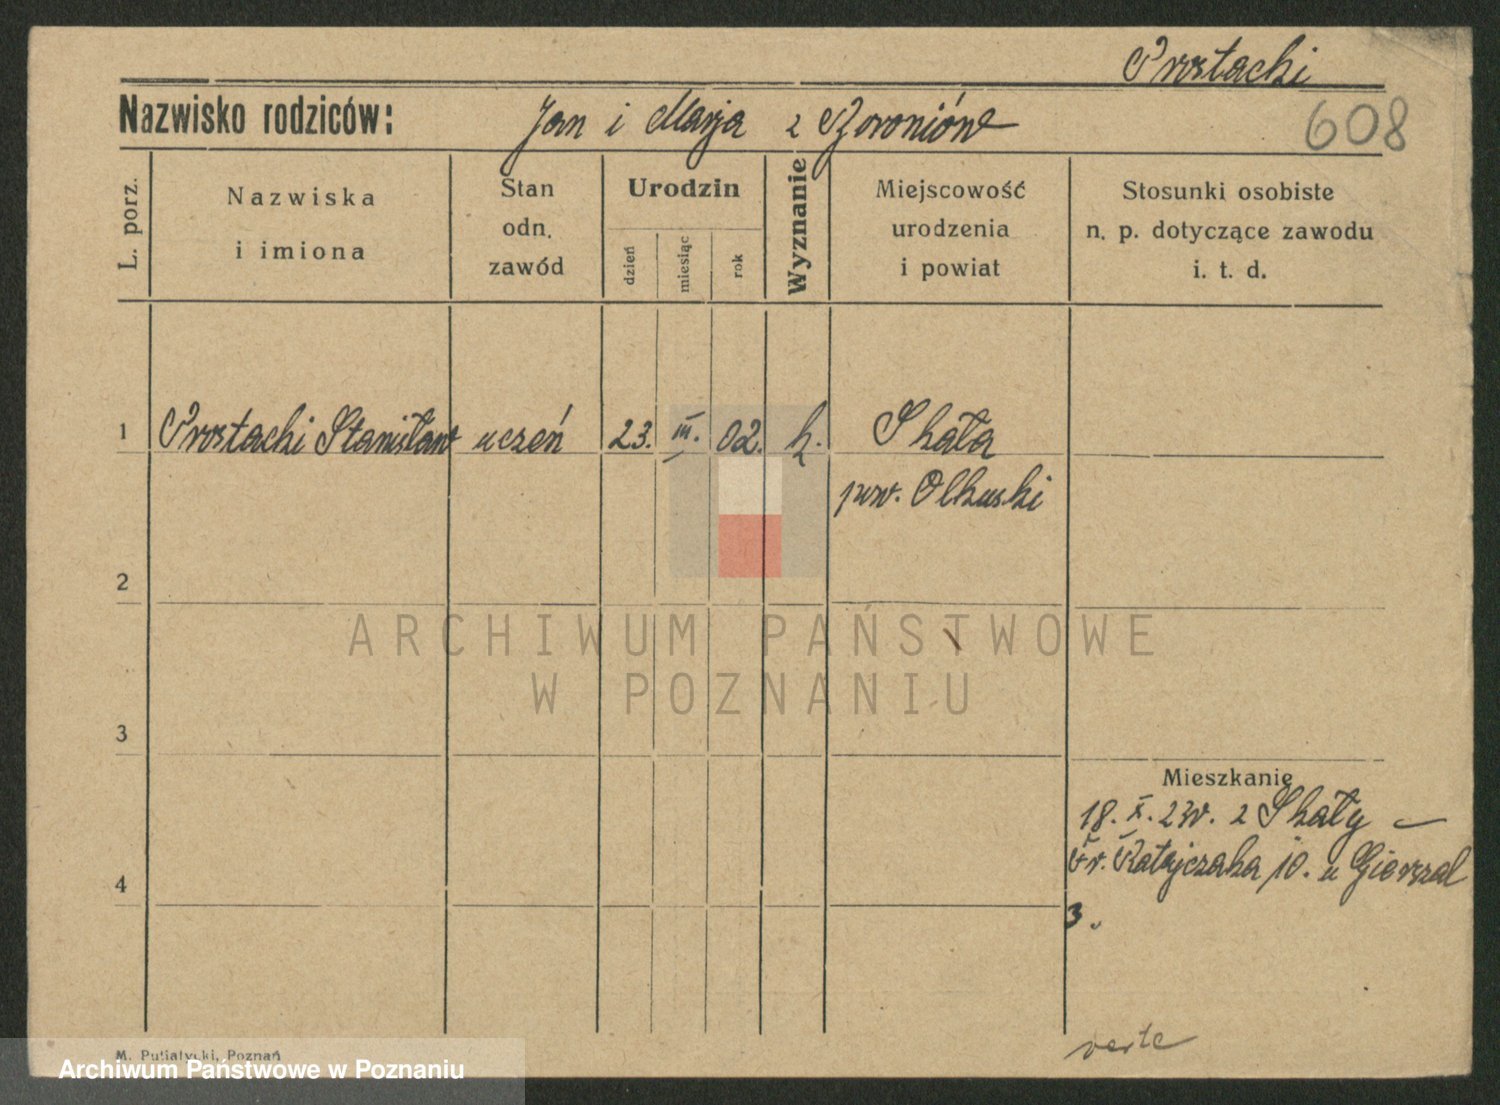 Prostacki
Nazwisko rodziców: Jan i Marja z
608
L. porz.
Nazwiska
i imiona
Stan
odn.
zawód
Urodzin
dzień
miesiąc
rok
Wyznanie
Miejscowość
urodzenia
i powiat
Stosunki osobiste
n. p. dotyczące zawodu
i. t. d.
1 Prostacki Stanisław uczeń 23. III. 02. k. Skała
pow. Olkuski
2
3
4
ARCHIWUM PAŃSTWOWE
W POZNANIU
Mieszkanie
18. X. 23r. z Skały —
Fr. Ratajczaka 10. u
3.
verte
M. Putiatycki, Poznań
Archiwum Państwowe w Poznaniu